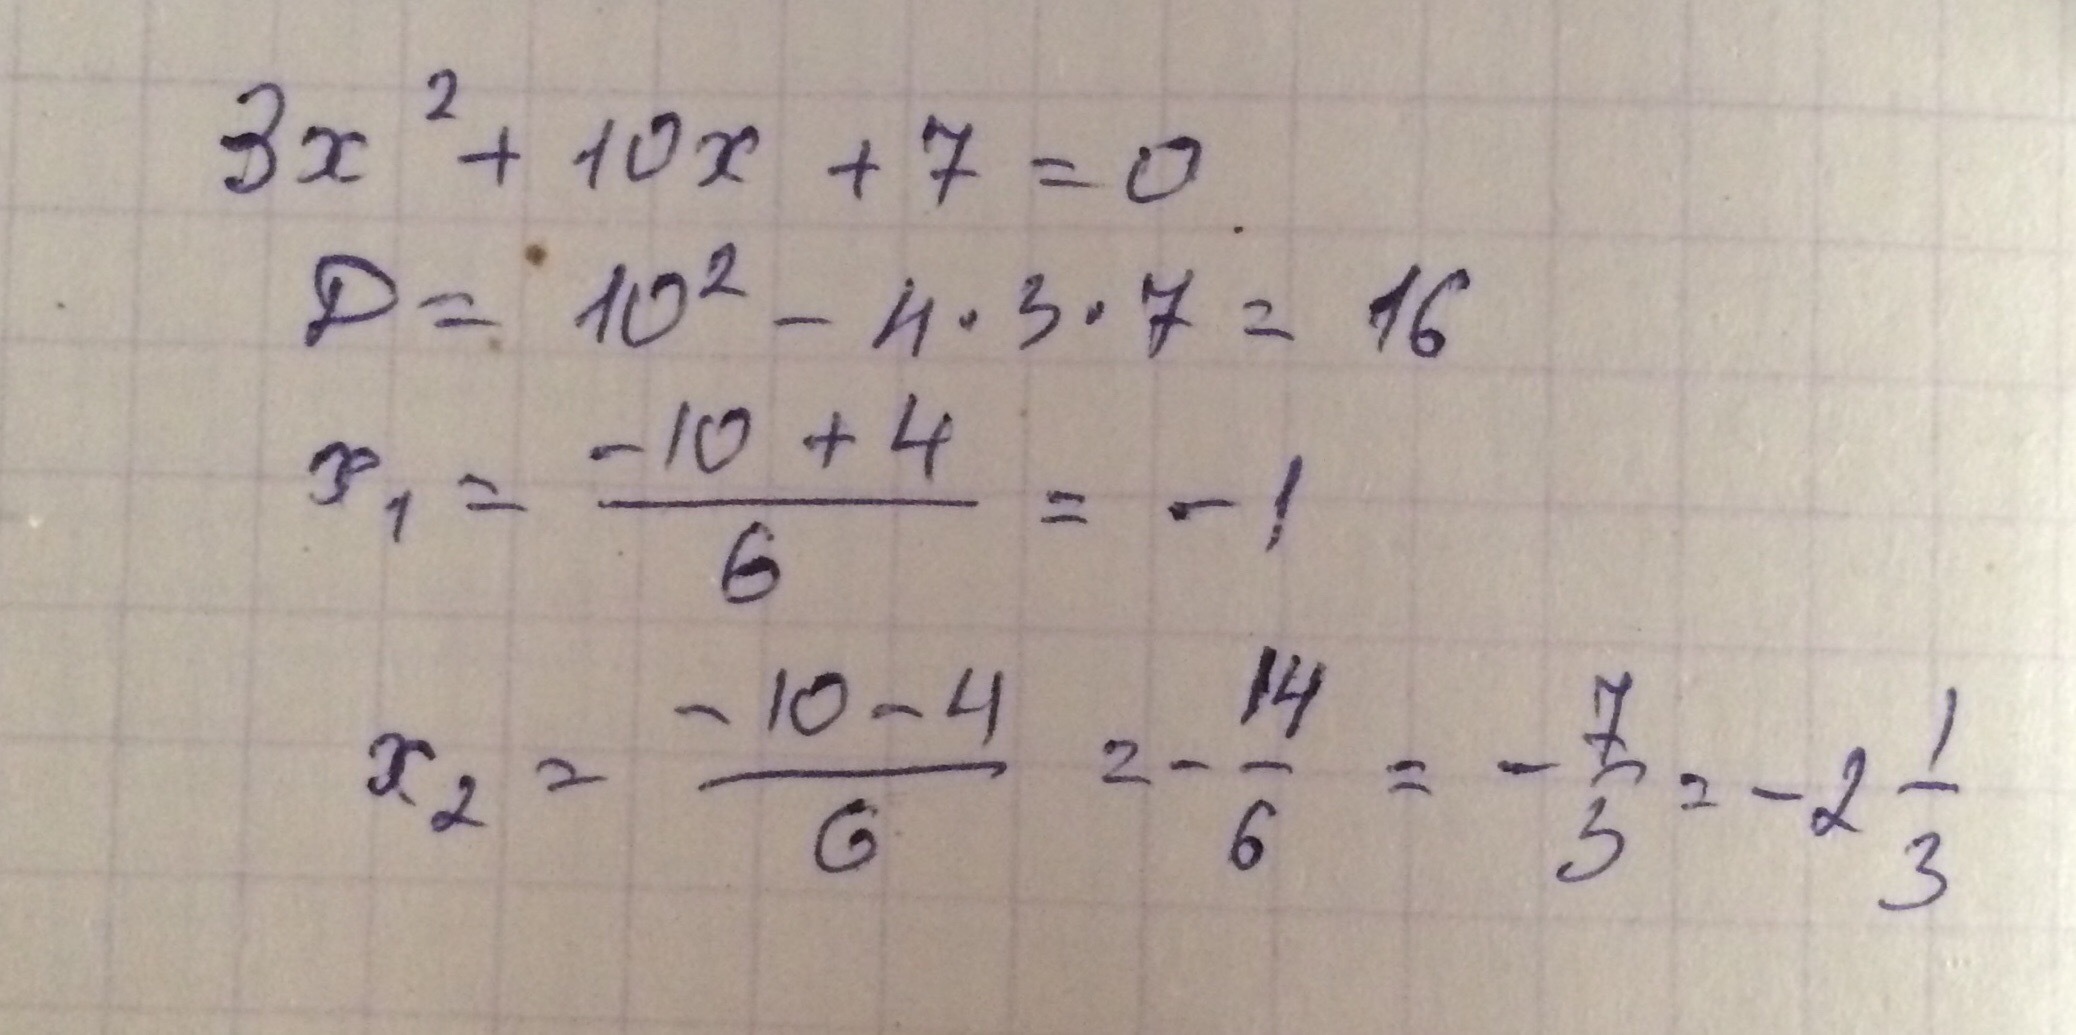 3x² + 10x + 7 = 0
D = 10² - 4 · 3 · 7 = 16
x₁ = (-10 + 4)/6 = -1
x₂ = (-10 - 4)/6 = - 14/6 = - 7/3 = -2 1/3